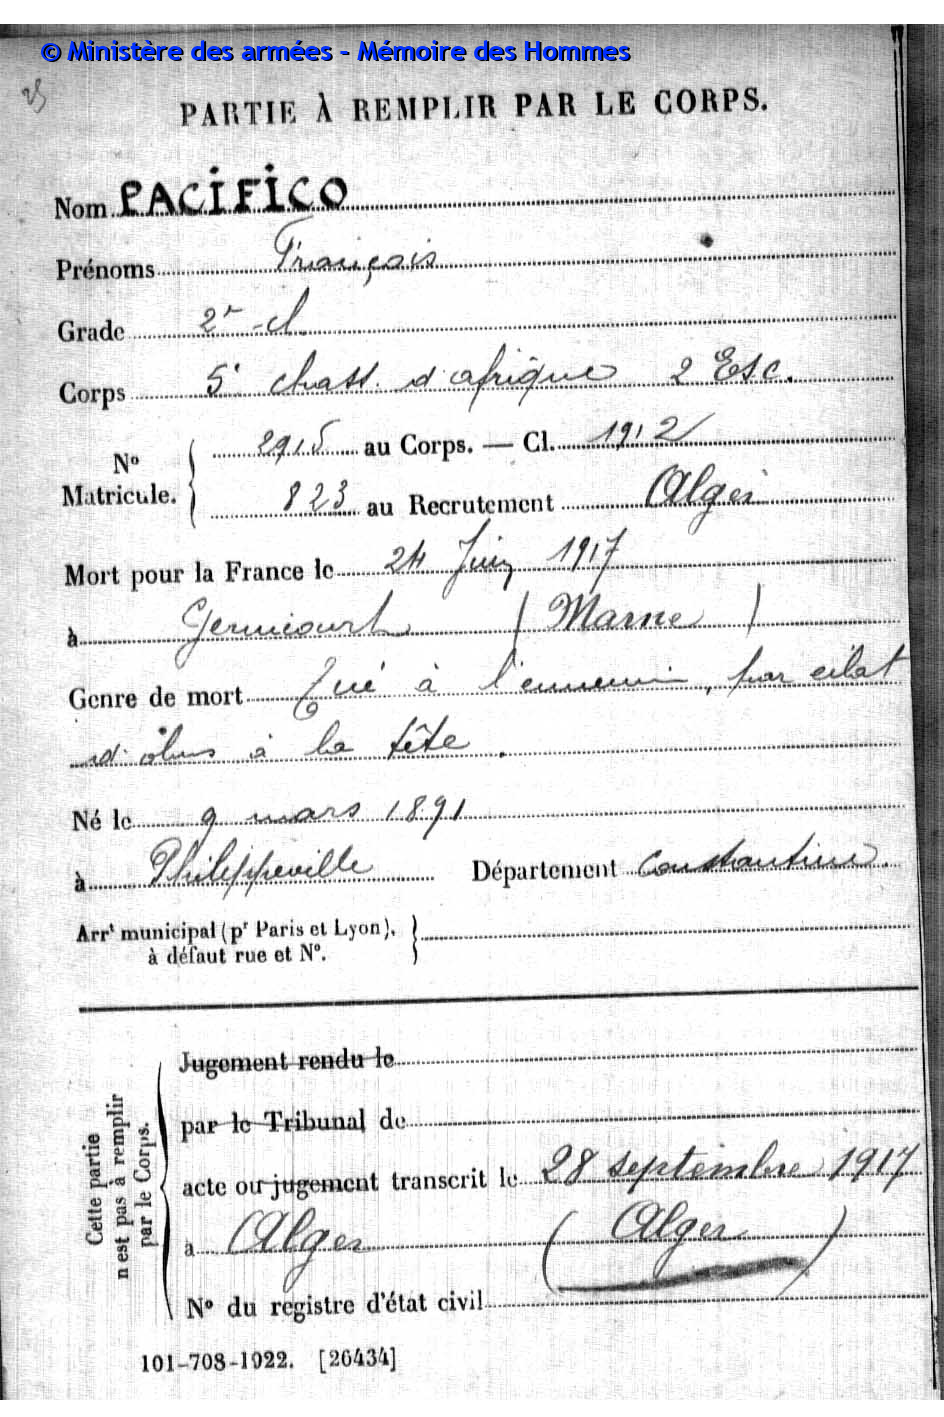 © Ministère des armées - Mémoire des Hommes
25
PARTIE À REMPLIR PAR LE CORPS.
Nom PACIFICO
Prénoms Français
Grade 2e cl.
Corps 5e chass. d'afrique 2 Esc.
No Matricule. 2915 au Corps. — Cl. 1912
823 au Recrutement Alger
Mort pour la France le 24 Juin 1917
à Germicourt (Marne)
Genre de mort Tué à l'ennemi, par éclat
d'obus à la tête.
Né le 9 mars 1891
à Philippeville Département Constantine.
Arrt municipal (pr Paris et Lyon),
à défaut rue et No.
Cette partie n'est pas à remplir par le Corps.
Jugement rendu le
par le Tribunal de
acte ou jugement transcrit le 28 septembre 1917
à Alger (Alger)
No du registre d'état civil
101-708-1922. [26434]